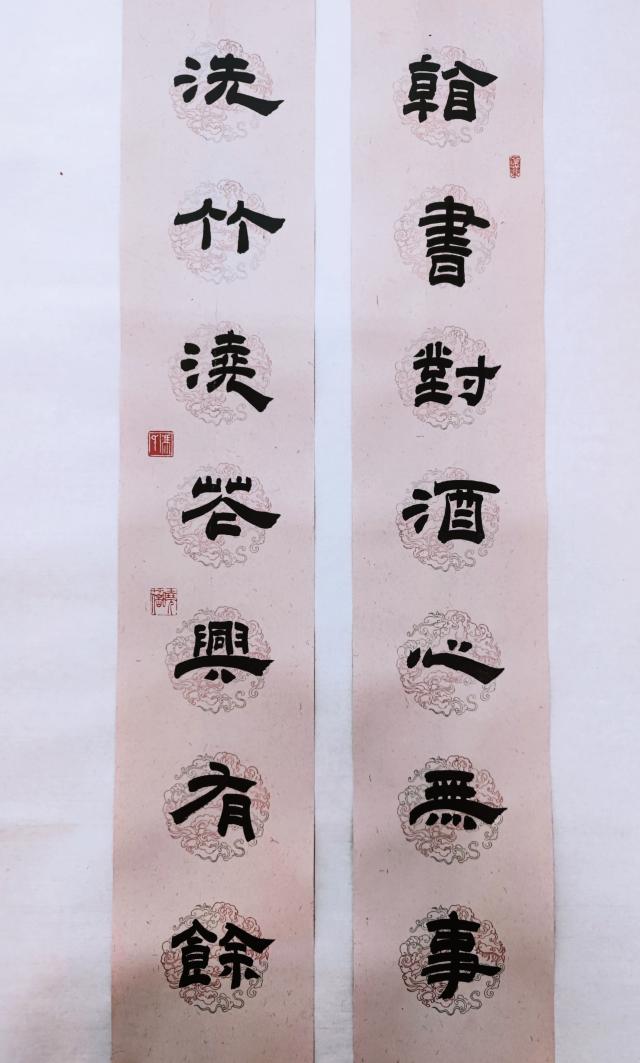 看書對酒心無事
洗竹澆花興有餘